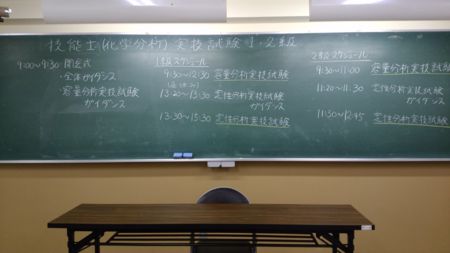 技能士(化学分析)実技試験 1・2級
9:00~9:30 開会式
・全体ガイダンス
・容量分析実技試験
ガイダンス
1級スケジュール
9:30~12:30 容量分析実技試験
13:20~13:30 定性分析実技試験
ガイダンス
13:30~15:30 定性分析実技試験
2級スケジュール
9:30~11:00 容量分析実技試験
11:20~11:30 定性分析実技試験
ガイダンス
11:30~12:45 定性分析実技試験